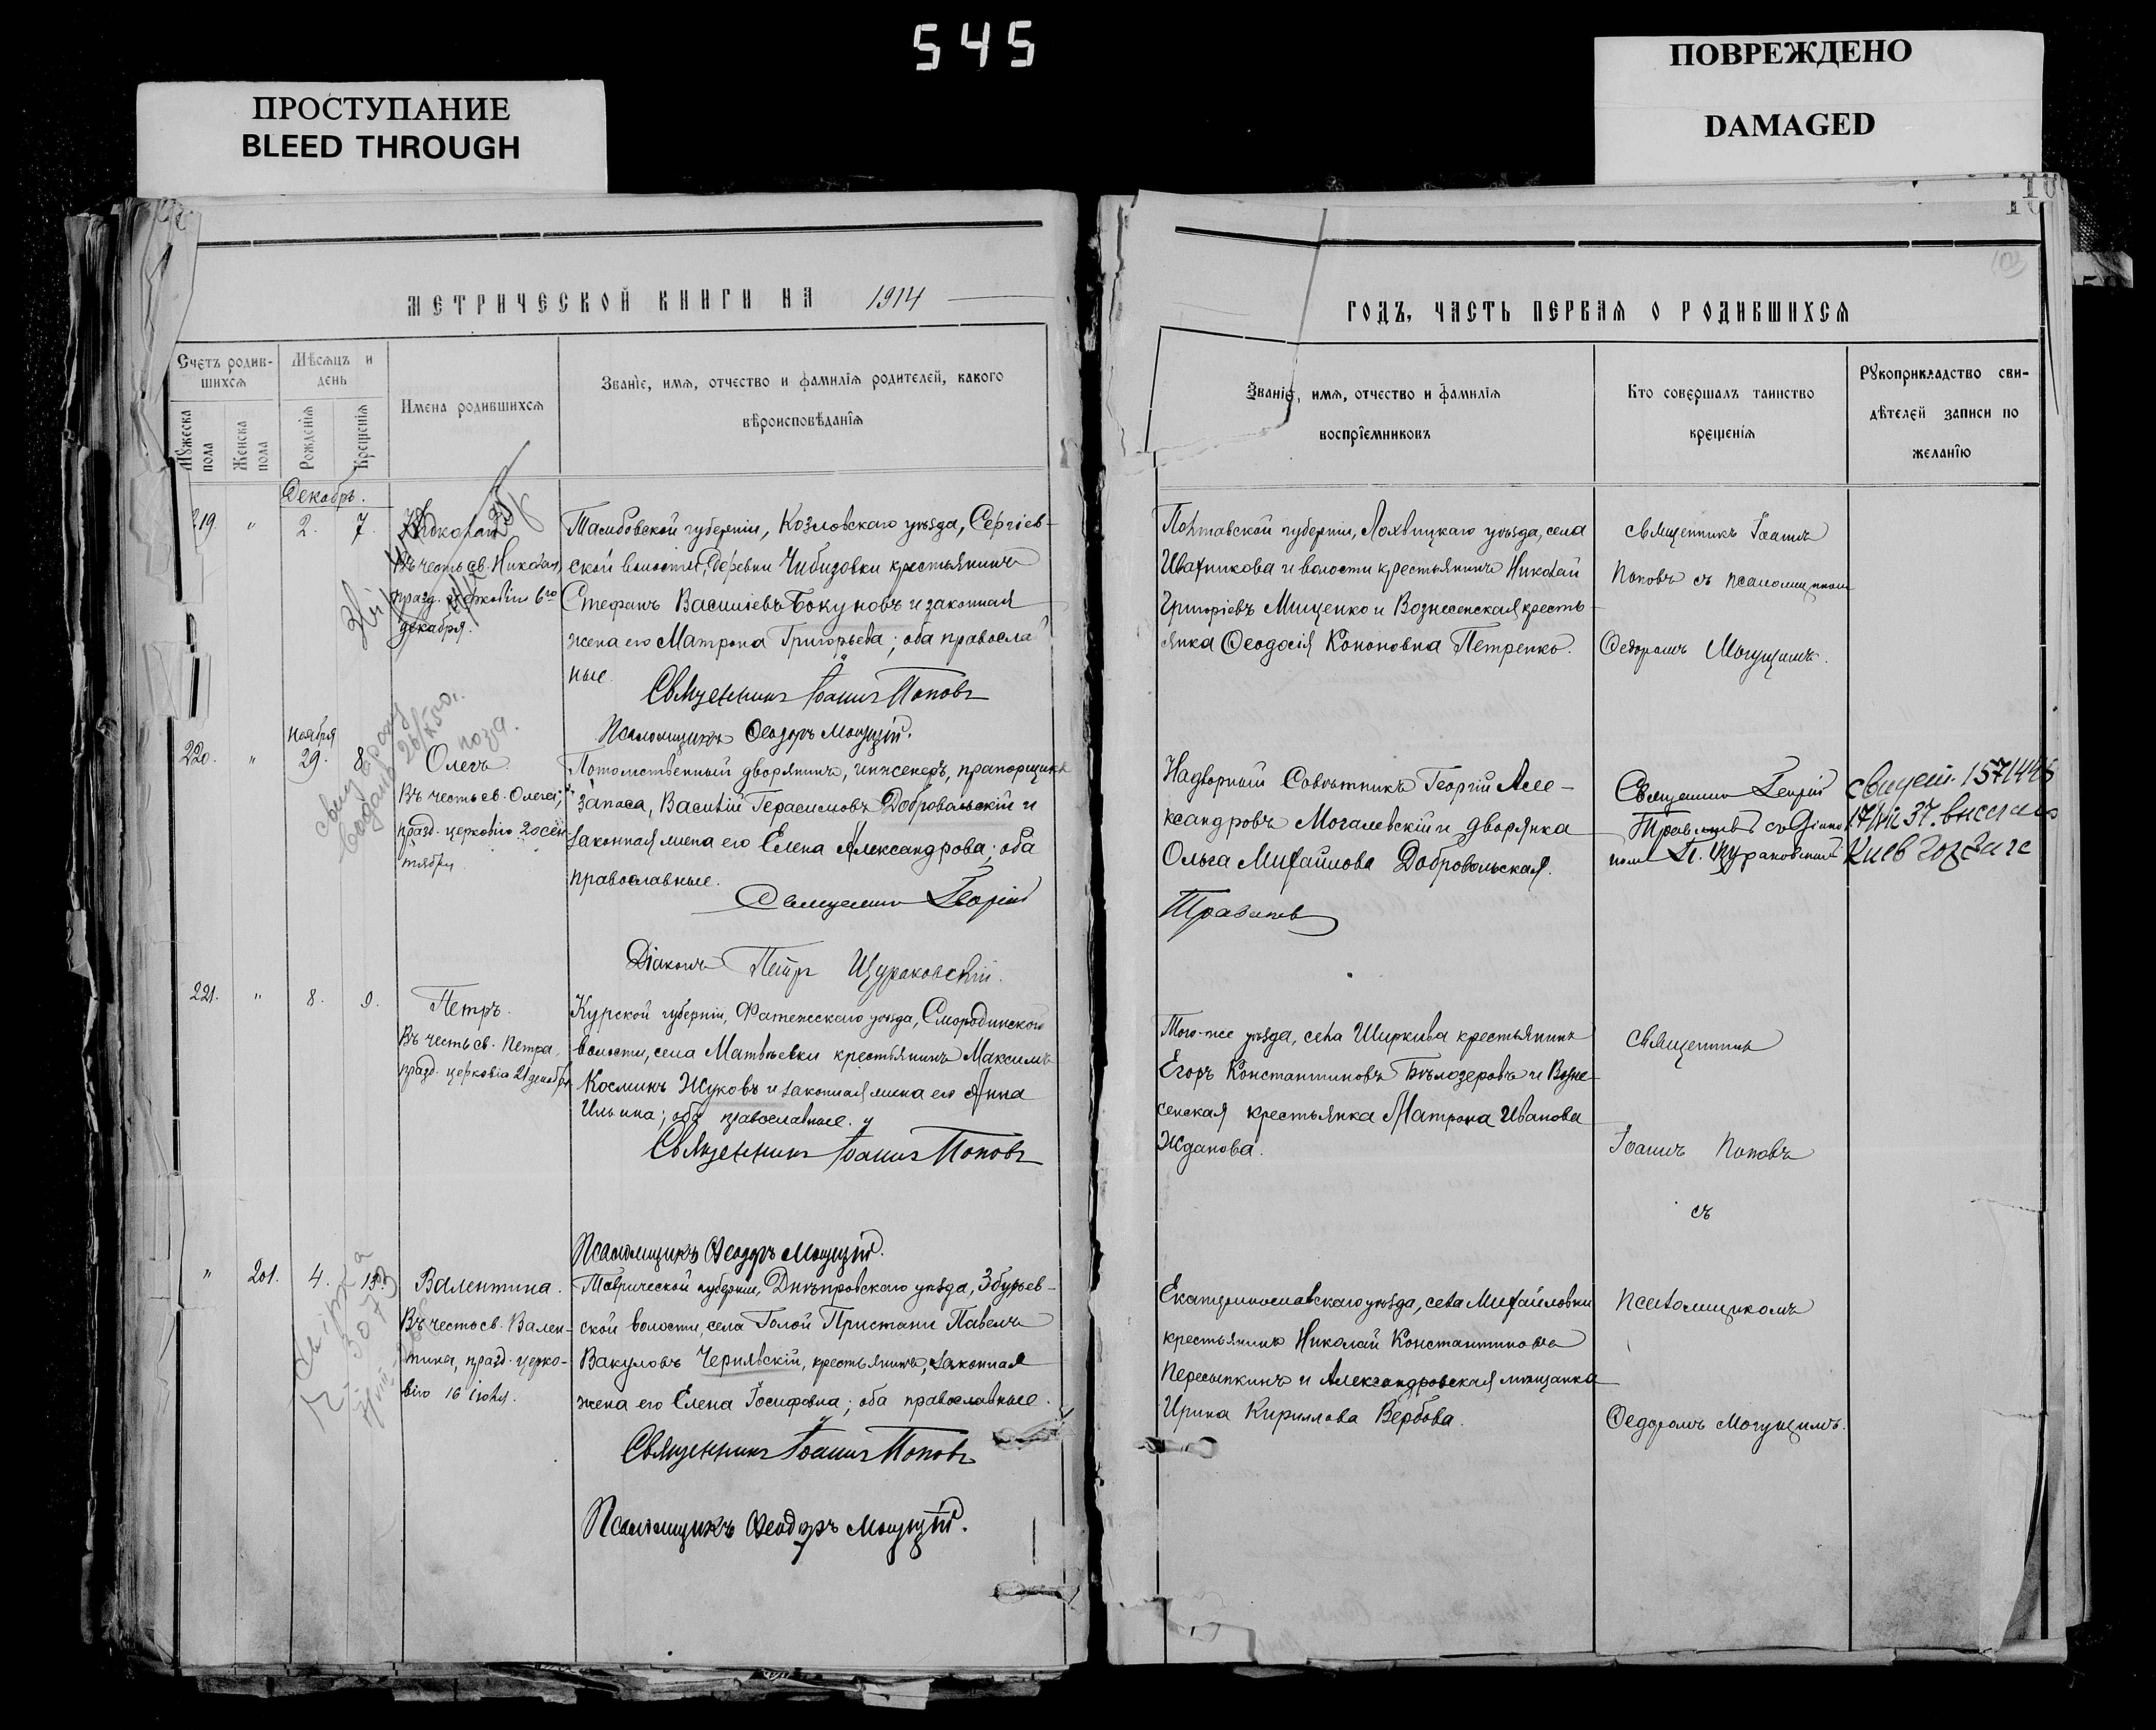 545
ПРОСТУПАНИЕ
BLEED THROUGH
ПОВРЕЖДЕНО
DAMAGED
МЕТРИЧЕСКОЙ КНИГИ НА 1914
ГОДЪ, ЧАСТЬ ПЕРВАЯ О РОДИВШИХСЯ
Счетъ родив-
шихся
Мѣсяцъ и
день
Мужеска
пола
Женска
пола
Рожденія
Крещенія
Имена родившихся
Званіе, имя, отчество и фамилія родителей, какого
вѣроисповѣданія
Званіе, имя, отчество и фамилія
воспріемниковъ
Кто совершалъ таинство
крещенія
Рукоприкладство сви-
дѣтелей записи по
желанію
Декабрь.
219. " 2. 7.
Николай
Въ честь св. Николая,
празд. церковію 6го
декабря.
Тамбовской губерніи, Козловскаго уѣзда, Сергіев-
ской волости, деревни Чибизовки крестьянинъ
Стефанъ Василіевъ Бокуновъ и законная
жена его Матрона Григорьева; оба православ
ные.
Священникъ Іоаннъ Поповъ
Псаломщикъ Ѳеодоръ Могущій.
Полтавской губерніи, Лохвицкаго уѣзда, села
Ивахникова и волости крестьянинъ Николай
Григоріевъ Мищенко и Вознесенская кресть-
янка Ѳеодосія Кононовна Петренко.
священникъ Іоаннъ
Поповъ съ псаломщикомъ
Ѳедоромъ Могущимъ.
ноября
220. " 29. 8.
Олегъ.
Въ честь св. Олега,
празд. церковію 20 сен-
тября.
Потомственный дворянинъ, инженеръ, прапорщикъ
запаса, Василій Герасимовъ Добровольскій и
законная жена его Елена Александрова; оба
православные.
Священникъ Георгій
Діаконъ Петръ Щураковскій.
Надворный Совѣтникъ Георгій Але-
ксандровъ Могалевскій и дворянка
Ольга Михайлова Добровольская.
Священникъ Георгій
съ Діако
номъ П. Щураковскимъ
17/VII 37.
Киев
221. " 8. 9.
Петръ.
Въ честь св. Петра,
празд. церковію 21 декабря
Курской губерніи, Фатежскаго уѣзда, Смородинской
волости, села Матвѣевки крестьянинъ Максимъ
Косминъ Жуковъ и законная жена его Анна
Ильина; оба православные.
Священникъ Іоаннъ Поповъ
Псаломщикъ Ѳеодоръ Могущій.
Того-же уѣзда, села Ширкова крестьянинъ
Егоръ Константиновъ Бѣлозеровъ и Возне-
сенская крестьянка Матрона Иванова
Жданова.
Священникъ
Іоаннъ Поповъ
съ
" 201. 4. 13.
Валентина.
Въ честь св. Вален-
тины, празд. церко-
вію 16 іюля.
Таврической губерніи, Днѣпровскаго уѣзда, Збурьев-
ской волости, села Голой Пристани Павелъ
Вакуловъ Чернявскій, крестьянинъ, законная
жена его Елена Іосифовна; оба православные.
Священникъ Іоаннъ Поповъ
Псаломщикъ Ѳеодоръ Могущій.
Екатеринославскаго уѣзда, села Михайловки
крестьянинъ Николай Константиновъ
Пересыпкинъ и Александровская мѣщанка
Ирина Кириллова Вербова.
псаломщикомъ
Ѳедоромъ Могущимъ.